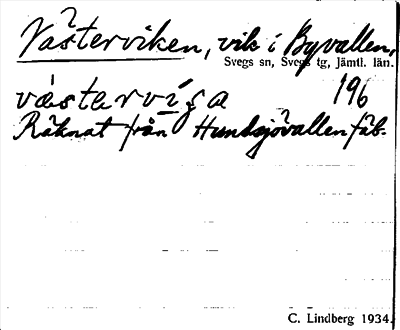 Västerviken, vik i Byvallen,
Svegs sn, Svegs tg, Jämtl. län.
västervi̱ga 196
Räknat från Hundsjövallen fäb.
C. Lindberg 1934.